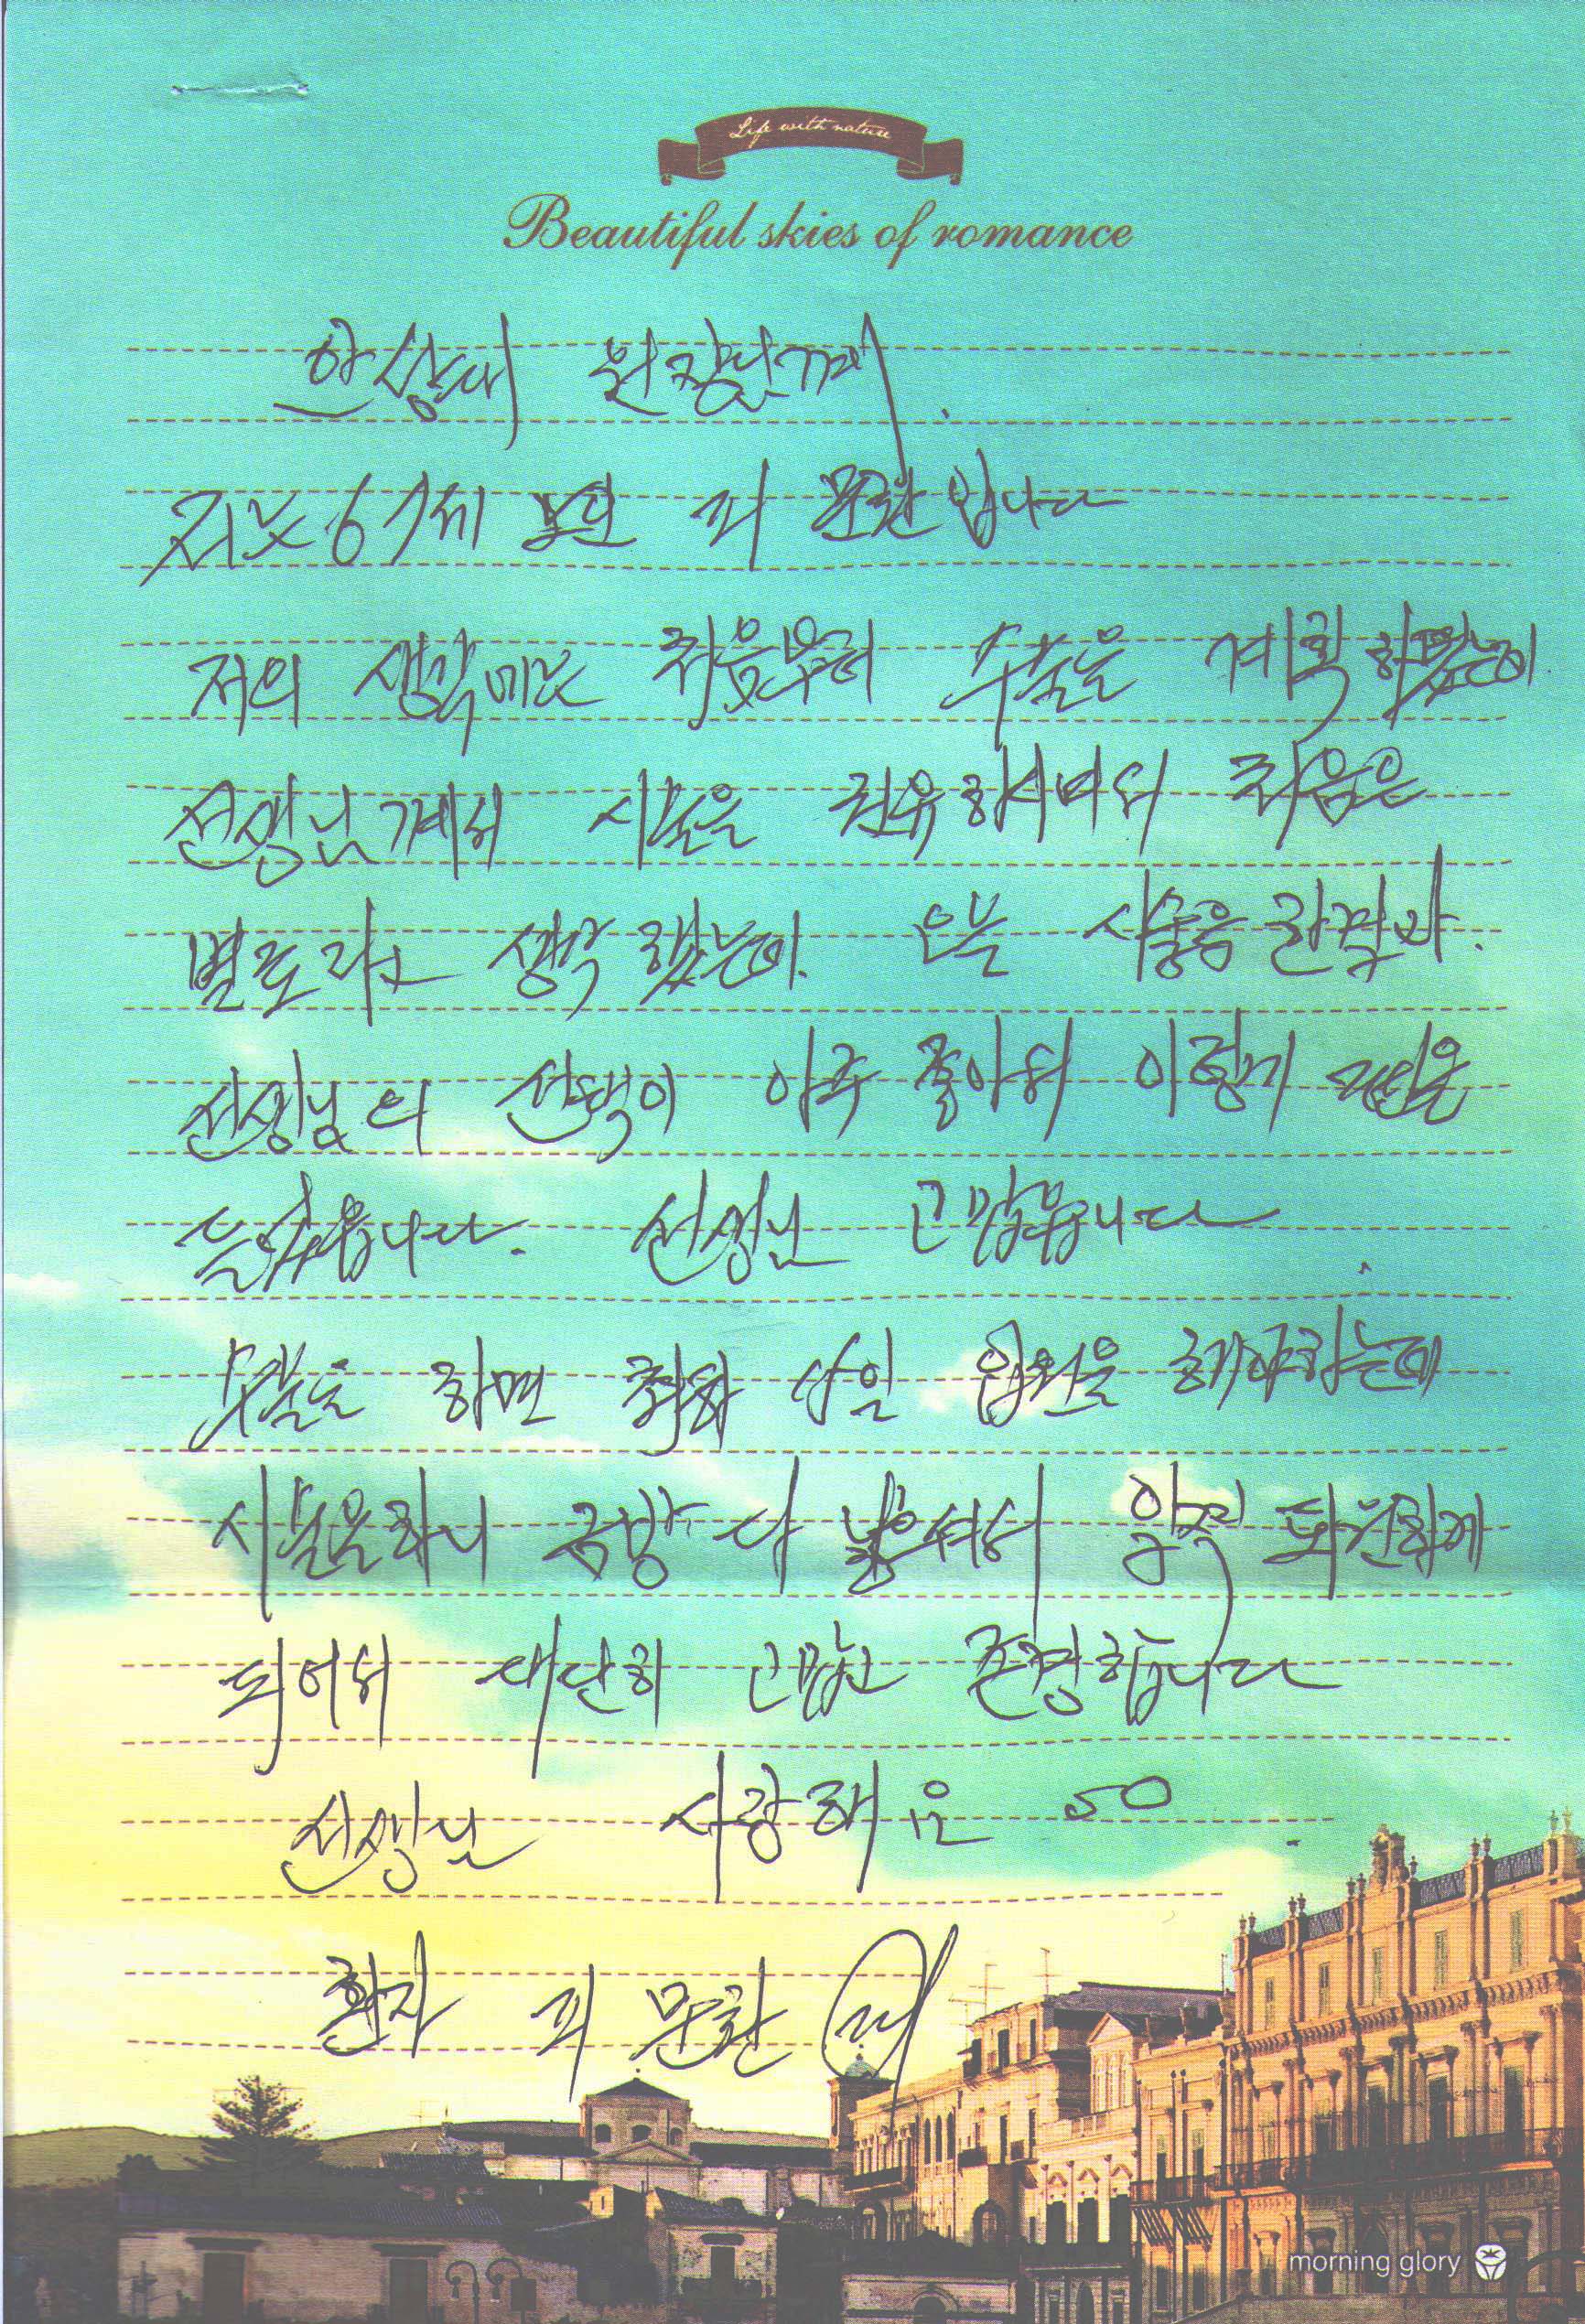 Life with nature
Beautiful skies of romance
한상배 원장님께.
저는 67세 남은 피 문환 입니다
저의 생각에는 처음부터 수술을 계획 하였는데
선생님 께서 시술을 권유 하시며서 처음은
별로라고 생각 했는데. 오늘 시술을 한 결과.
선생님의 선택이 아주 좋아서 이렇게 펜을
들었습니다. 선생님 고맙습니다.
수술을 하면 최하 삼일 입원을 해야하는데
시술을하니 금방 다 나여서 아직 퇴원하게
되어서 대단히 고맙고 존경합니다
선생님 사랑해 요
환자 피 문환
morning glory